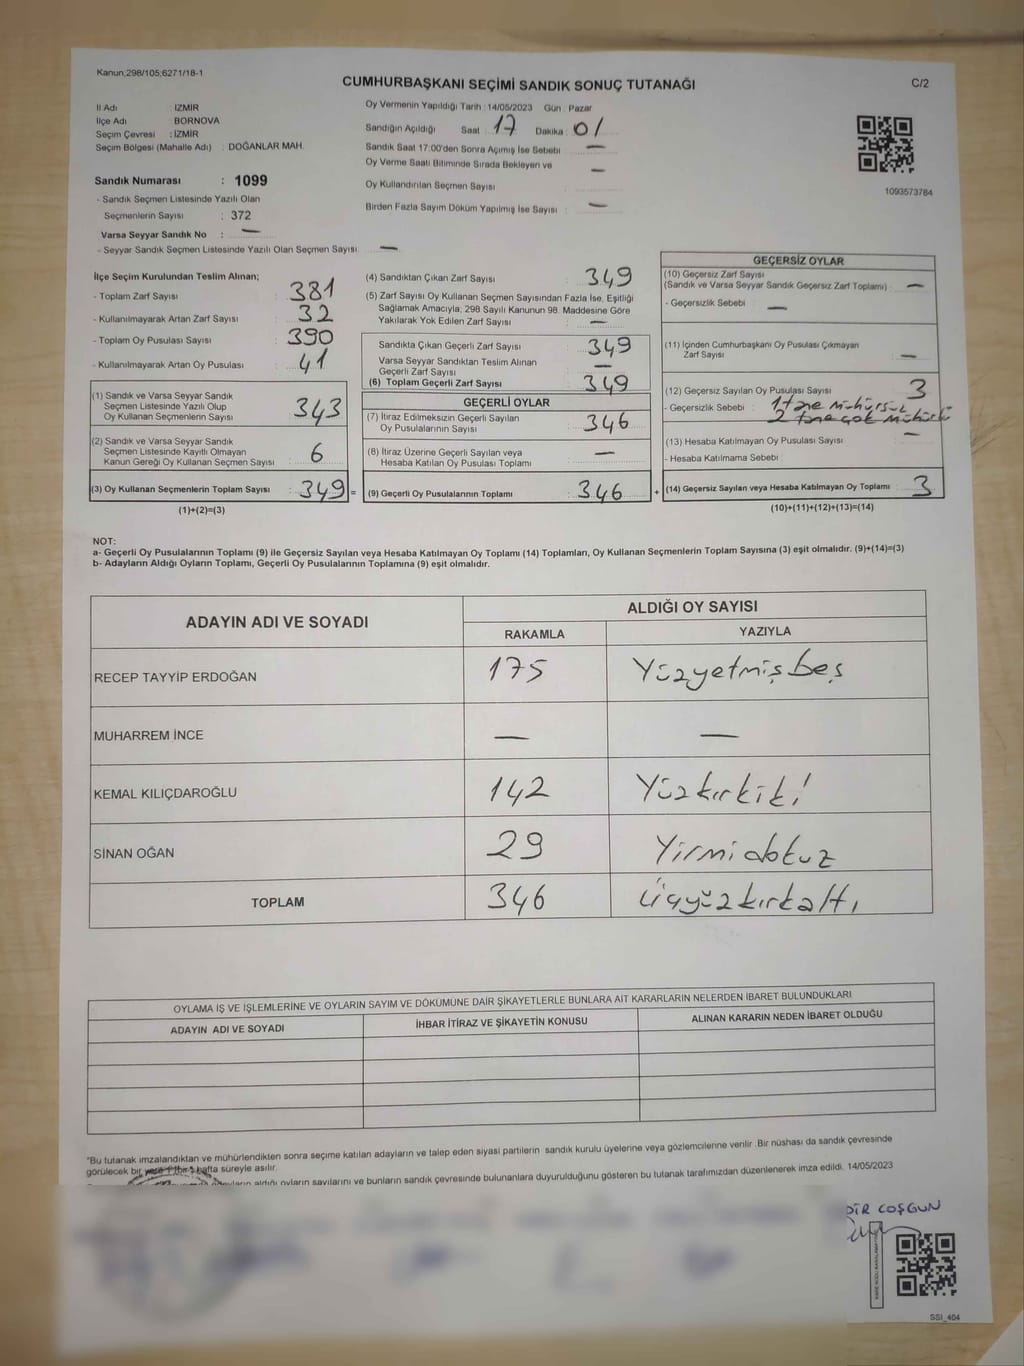 Kanun;298/105;6271/18-1
CUMHURBAŞKANI SEÇİMİ SANDIK SONUÇ TUTANAĞI
C/2
İl Adı : İZMİR
İlçe Adı : BORNOVA
Seçim Çevresi : İZMİR
Seçim Bölgesi (Mahalle Adı) : DOĞANLAR MAH.
Sandık Numarası : 1099
- Sandık Seçmen Listesinde Yazılı Olan
Seçmenlerin Sayısı : 372
Varsa Seyyar Sandık No : —
- Seyyar Sandık Seçmen Listesinde Yazılı Olan Seçmen Sayısı: —
Oy Vermenin Yapıldığı Tarih :14/05/2023 Gün : Pazar
Sandığın Açıldığı Saat : 17 Dakika : 01
Sandık Saat 17:00'den Sonra Açımış İse Sebebi : —
Oy Verme Saati Bitiminde Sırada Bekleyen ve —
Oy Kullandırılan Seçmen Sayısı :
Birden Fazla Sayım Döküm Yapılmış İse Sayısı : —
1093573784
İlçe Seçim Kurulundan Teslim Alınan;
- Toplam Zarf Sayısı : 381
- Kullanılmayarak Artan Zarf Sayısı : 32
- Toplam Oy Pusulası Sayısı : 390
- Kullanılmayarak Artan Oy Pusulası : 41
(1) Sandık ve Varsa Seyyar Sandık
Seçmen Listesinde Yazılı Olup
Oy Kullanan Seçmenlerin Sayısı : 343
(2) Sandık ve Varsa Seyyar Sandık
Seçmen Listesinde Kayıtlı Olmayan
Kanun Gereği Oy Kullanan Seçmen Sayısı : 6
(3) Oy Kullanan Seçmenlerin Toplam Sayısı : 349 =
(1)+(2)=(3)
(4) Sandıktan Çıkan Zarf Sayısı : 349
(5) Zarf Sayısı Oy Kullanan Seçmen Sayısından Fazla İse, Eşitliği
Sağlamak Amacıyla; 298 Sayılı Kanunun 98. Maddesine Göre
Yakılarak Yok Edilen Zarf Sayısı : —
Sandıkta Çıkan Geçerli Zarf Sayısı : 349
Varsa Seyyar Sandıktan Teslim Alınan
Geçerli Zarf Sayısı : —
(6) Toplam Geçerli Zarf Sayısı : 349
GEÇERLİ OYLAR
(7) İtiraz Edilmeksizin Geçerli Sayılan
Oy Pusulalarının Sayısı : 346
(8) İtiraz Üzerine Geçerli Sayılan veya
Hesaba Katılan Oy Pusulası Toplamı : —
(9) Geçerli Oy Pusulalarının Toplamı : 346 +
GEÇERSİZ OYLAR
(10) Geçersiz Zarf Sayısı
(Sandık ve Varsa Seyyar Sandık Geçersiz Zarf Toplamı) : —
- Geçersizlik Sebebi : —
(11) İçinden Cumhurbaşkanı Oy Pusulası Çıkmayan
Zarf Sayısı : —
(12) Geçersiz Sayılan Oy Pusulası Sayısı : 3
- Geçersizlik Sebebi : 1 tane mühürsüz
2 tane çok mühürlü
(13) Hesaba Katılmayan Oy Pusulası Sayısı : —
- Hesaba Katılmama Sebebi :
(14) Geçersiz Sayılan veya Hesaba Katılmayan Oy Toplamı : 3
(10)+(11)+(12)+(13)=(14)
NOT:
a- Geçerli Oy Pusulalarının Toplamı (9) ile Geçersiz Sayılan veya Hesaba Katılmayan Oy Toplamı (14) Toplamları, Oy Kullanan Seçmenlerin Toplam Sayısına (3) eşit olmalıdır. (9)+(14)=(3)
b- Adayların Aldığı Oyların Toplamı, Geçerli Oy Pusulalarının Toplamına (9) eşit olmalıdır.
ADAYIN ADI VE SOYADI ALDIĞI OY SAYISI
RAKAMLA YAZIYLA
RECEP TAYYİP ERDOĞAN 175 Yüzyetmişbeş
MUHARREM İNCE — —
KEMAL KILIÇDAROĞLU 142 Yüzkırkiki
SİNAN OĞAN 29 Yirmidokuz
TOPLAM 346 Üçyüzkırkaltı
OYLAMA İŞ VE İŞLEMLERİNE VE OYLARIN SAYIM VE DÖKÜMÜNE DAİR ŞİKAYETLERLE BUNLARA AİT KARARLARIN NELERDEN İBARET BULUNDUKLARI
ADAYIN ADI VE SOYADI İHBAR İTİRAZ VE ŞİKAYETİN KONUSU ALINAN KARARIN NEDEN İBARET OLDUĞU
"Bu tutanak imzalandıktan ve mühürlendikten sonra seçime katılan adayların ve talep eden siyasi partilerin sandık kurulu üyelerine veya gözlemcilerine verilir. Bir nüshası da sandık çevresinde
görülecek bir yere 1 (bir) hafta süreyle asılır.
aldığı oyların sayılarını ve bunların sandık çevresinde bulunanlara duyurulduğunu gösteren bu tutanak tarafımızdan düzenlenerek imza edildi. 14/05/2023
DİR COŞGUN
SSİ_404